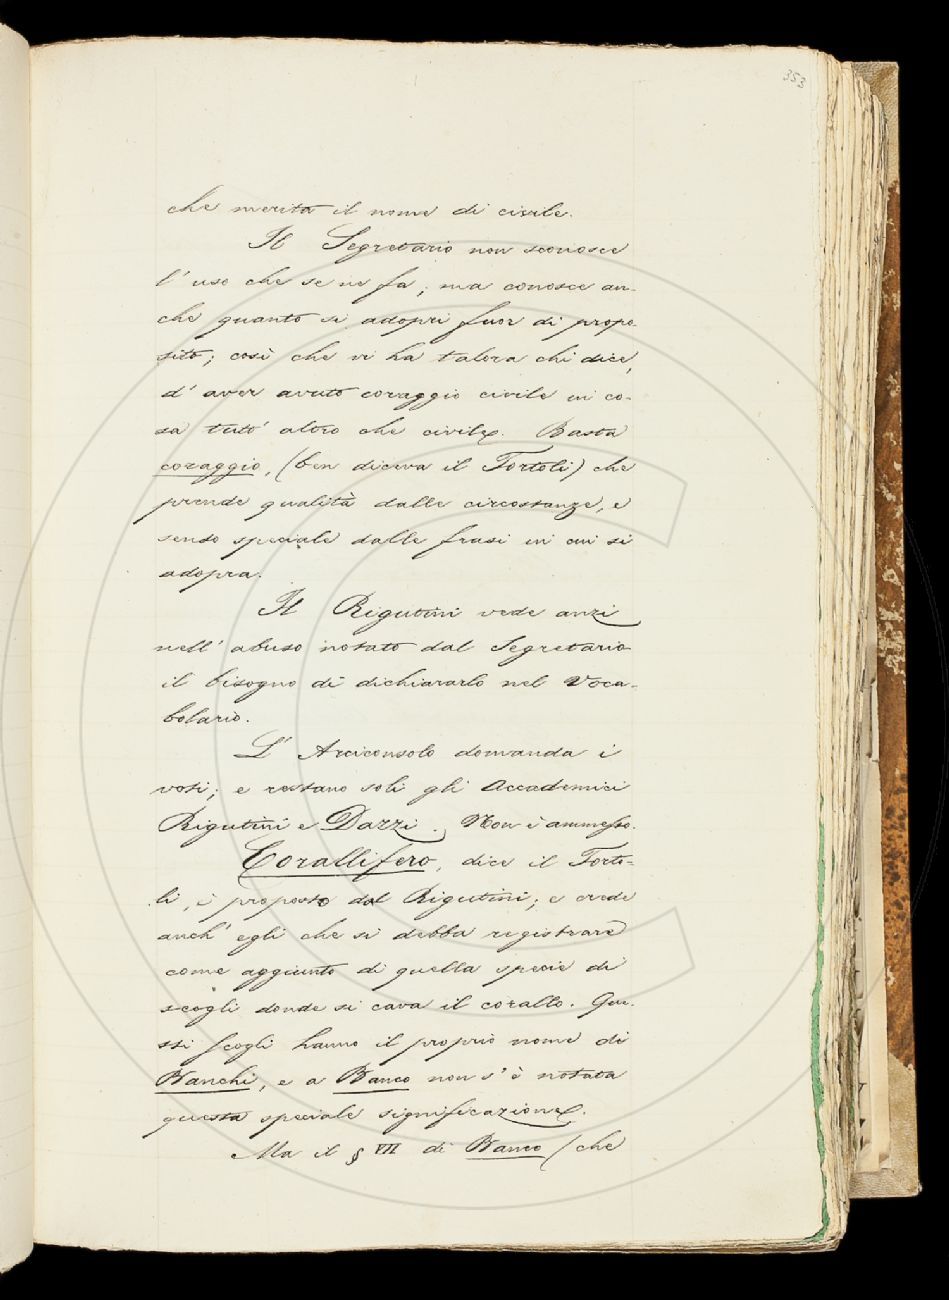 353
che merita il nome di civile.
Il Segretario non sconosce
l'uso che se ne fa; ma conosce an-
che quanto si adopri fuor di propo-
sito; così che vi ha talora chi dice,
d'aver avuto coraggio civile in co-
sa tutt'altro che civile. Basta
coraggio, (ben diceva il Tortoli) che
prende qualità dalle circostanze, e
senso speciale dalle frasi in cui si
adopra.
Il Rigutini vede anzi
nell'abuso notato dal Segretario
il bisogno di dichiararlo nel Voca-
bolario.
L'Arciconsolo domanda i
voti; e restano soli gli Accademici
Rigutini e Dazzi. Non è ammesso.
Corallifero, dice il Torto-
li, è proposto dal Rigutini; e crede
anch'egli che si debba registrare
come aggiunto di quella specie di
scogli donde si cava il corallo. Que-
sti scogli hanno il proprio nome di
Banchi, e a Banco non s'è notata
questa speciale significazione.
Ma il § VII di Banco (che